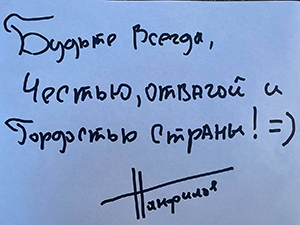 Будьте всегда,
Честью, отвагой и
Гордостью страны! =)
Панфилов